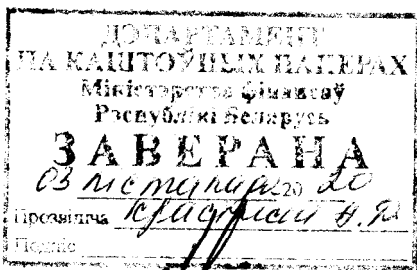 ДЭПАРТАМЕНТ
ПА КАШТОЎНЫХ ПАПЕРАХ
Міністэрства фінансаў
Рэспублікі Беларусь
ЗАВЕРАНА
03 лістапада 2020
Прозвішча
Подпіс